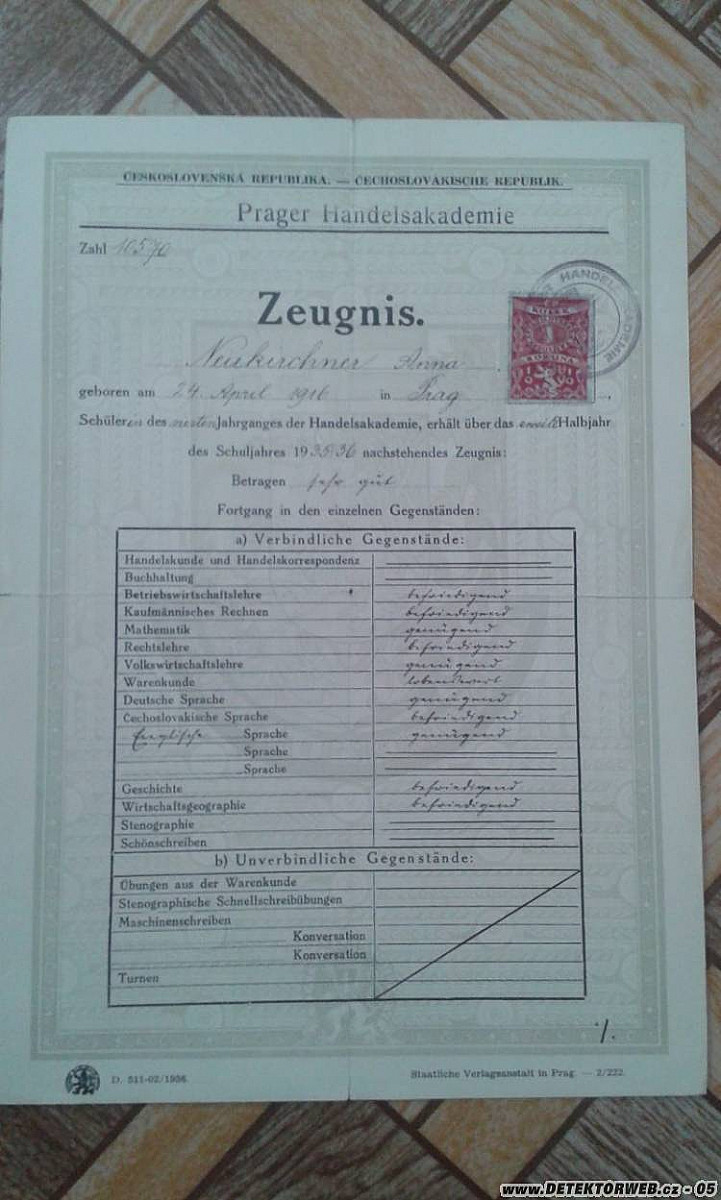 ČESKOSLOVENSKÁ REPUBLIKA. — ČECHOSLOVAKISCHE REPUBLIK.
Prager Handelsakademie
Zahl 10570
HANDELS
Zeugnis.
1
KORUNA
Neukirchner Anna
geboren am 24. April 1916 in Prag
Schülerin des Jahrganges der Handelsakademie, erhält über das Halbjahr
des Schuljahres 1935/36 nachstehendes Zeugnis:
Betragen sehr gut
Fortgang in den einzelnen Gegenständen:
a) Verbindliche Gegenstände:
Handelskunde und Handelskorrespondenz
Buchhaltung
Betriebswirtschaftslehre befriedigend
Kaufmännisches Rechnen befriedigend
Mathematik genügend
Rechtslehre befriedigend
Volkswirtschaftslehre genügend
Warenkunde lobenswert
Deutsche Sprache genügend
Čechoslovakische Sprache befriedigend
Englische Sprache genügend
Sprache
Sprache
Geschichte befriedigend
Wirtschaftsgeographie befriedigend
Stenographie
Schönschreiben
b) Unverbindliche Gegenstände:
Übungen aus der Warenkunde
Stenographische Schnellschreibübungen
Maschinenschreiben
Konversation
Konversation
Turnen
·/.
D. 511-02/1936. Staatliche Verlagsanstalt in Prag. — 2/222.
www.DETEKTORWEB.cz - 05